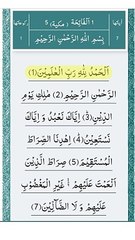 ١ الْفَاتِحَة (مكية) 5
بِسْمِ اللهِ الرَّحْمٰنِ الرَّحِيْمِ
اَلْحَمْدُ لِلّٰهِ رَبِّ الْعٰلَمِيْنَ(1)
الرَّحْمٰنِ الرَّحِيْمِ(2) مٰلِكِ يَوْمِ
الدِّيْنِ(3) اِيَّاكَ نَعْبُدُ وَ اِيَّاكَ
نَسْتَعِيْنُ(4) اِهْدِنَا الصِّرَاطَ
الْمُسْتَقِيْمَ(5) صِرَاطَ الَّذِيْنَ
اَنْعَمْتَ عَلَيْهِمْ(6) غَيْرِ الْمَغْضُوْبِ
عَلَيْهِمْ وَ لَا الضَّآلِّيْنَ(7)